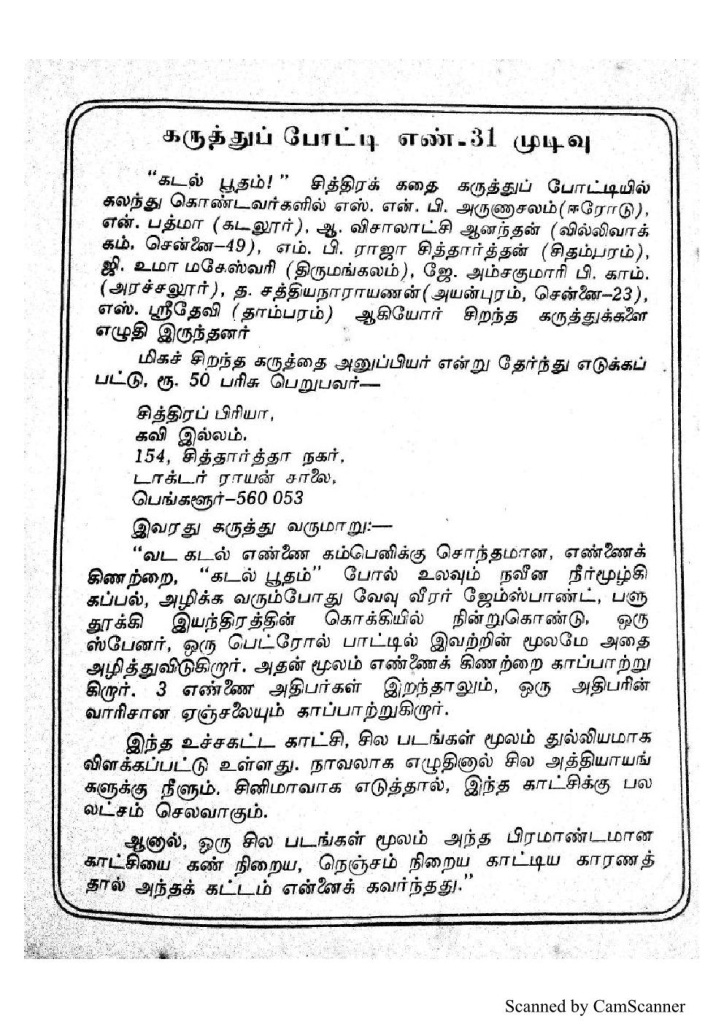 கருத்துப் போட்டி எண்-31 முடிவு
"கடல் பூதம்!" சித்திரக் கதை கருத்துப் போட்டியில்
கலந்து கொண்டவர்களில் எஸ். என். பி. அருணாசலம்(ஈரோடு),
என். பத்மா (கடலூர்), ஆ. விசாலாட்சி ஆனந்தன் (வில்லிவாக்
கம். சென்னை-49), எம். பி. ராஜா சித்தார்த்தன் (சிதம்பரம்),
ஜி. உமா மகேஸ்வரி (திருமங்கலம்), ஜே. அம்சகுமாரி பி. காம்.
(அரச்சலூர்), த. சத்தியநாராயணன்(அயன்புரம், சென்னை-23),
எஸ். ஸ்ரீதேவி (தாம்பரம்) ஆகியோர் சிறந்த கருத்துக்களை
எழுதி இருந்தனர்
மிகச் சிறந்த கருத்தை அனுப்பியர் என்று தேர்ந்து எடுக்கப்
பட்டு, ரூ. 50 பரிசு பெறுபவர்—
சித்திரப் பிரியா,
கவி இல்லம்.
154, சித்தார்த்தா நகர்,
டாக்டர் ராயன் சாலை,
பெங்களூர்-560 053
இவரது கருத்து வருமாறு:—
"வட கடல் எண்ணை கம்பெனிக்கு சொந்தமான, எண்ணைக்
கிணற்றை, "கடல் பூதம்" போல் உலவும் நவீன நீர்மூழ்கி
கப்பல், அழிக்க வரும்போது வேவு வீரர் ஜேம்ஸ்பாண்ட், பளு
தூக்கி இயந்திரத்தின் கொக்கியில் நின்றுகொண்டு, ஒரு
ஸ்பேனர், ஒரு பெட்ரோல் பாட்டில் இவற்றின் மூலமே அதை
அழித்துவிடுகிறார். அதன் மூலம் எண்ணைக் கிணற்றை காப்பாற்று
கிறார். 3 எண்ணை அதிபர்கள் இறந்தாலும், ஒரு அதிபரின்
வாரிசான ஏஞ்சலையும் காப்பாற்றுகிறார்.
இந்த உச்சகட்ட காட்சி, சில படங்கள் மூலம் துல்லியமாக
விளக்கப்பட்டு உள்ளது. நாவலாக எழுதினால் சில அத்தியாயங்
களுக்கு நீளும். சினிமாவாக எடுத்தால், இந்த காட்சிக்கு பல
லட்சம் செலவாகும்.
ஆனால், ஒரு சில படங்கள் மூலம் அந்த பிரமாண்டமான
காட்சியை கண் நிறைய, நெஞ்சம் நிறைய காட்டிய காரணத்
தால் அந்தக் கட்டம் என்னைக் கவர்ந்தது."
Scanned by CamScanner